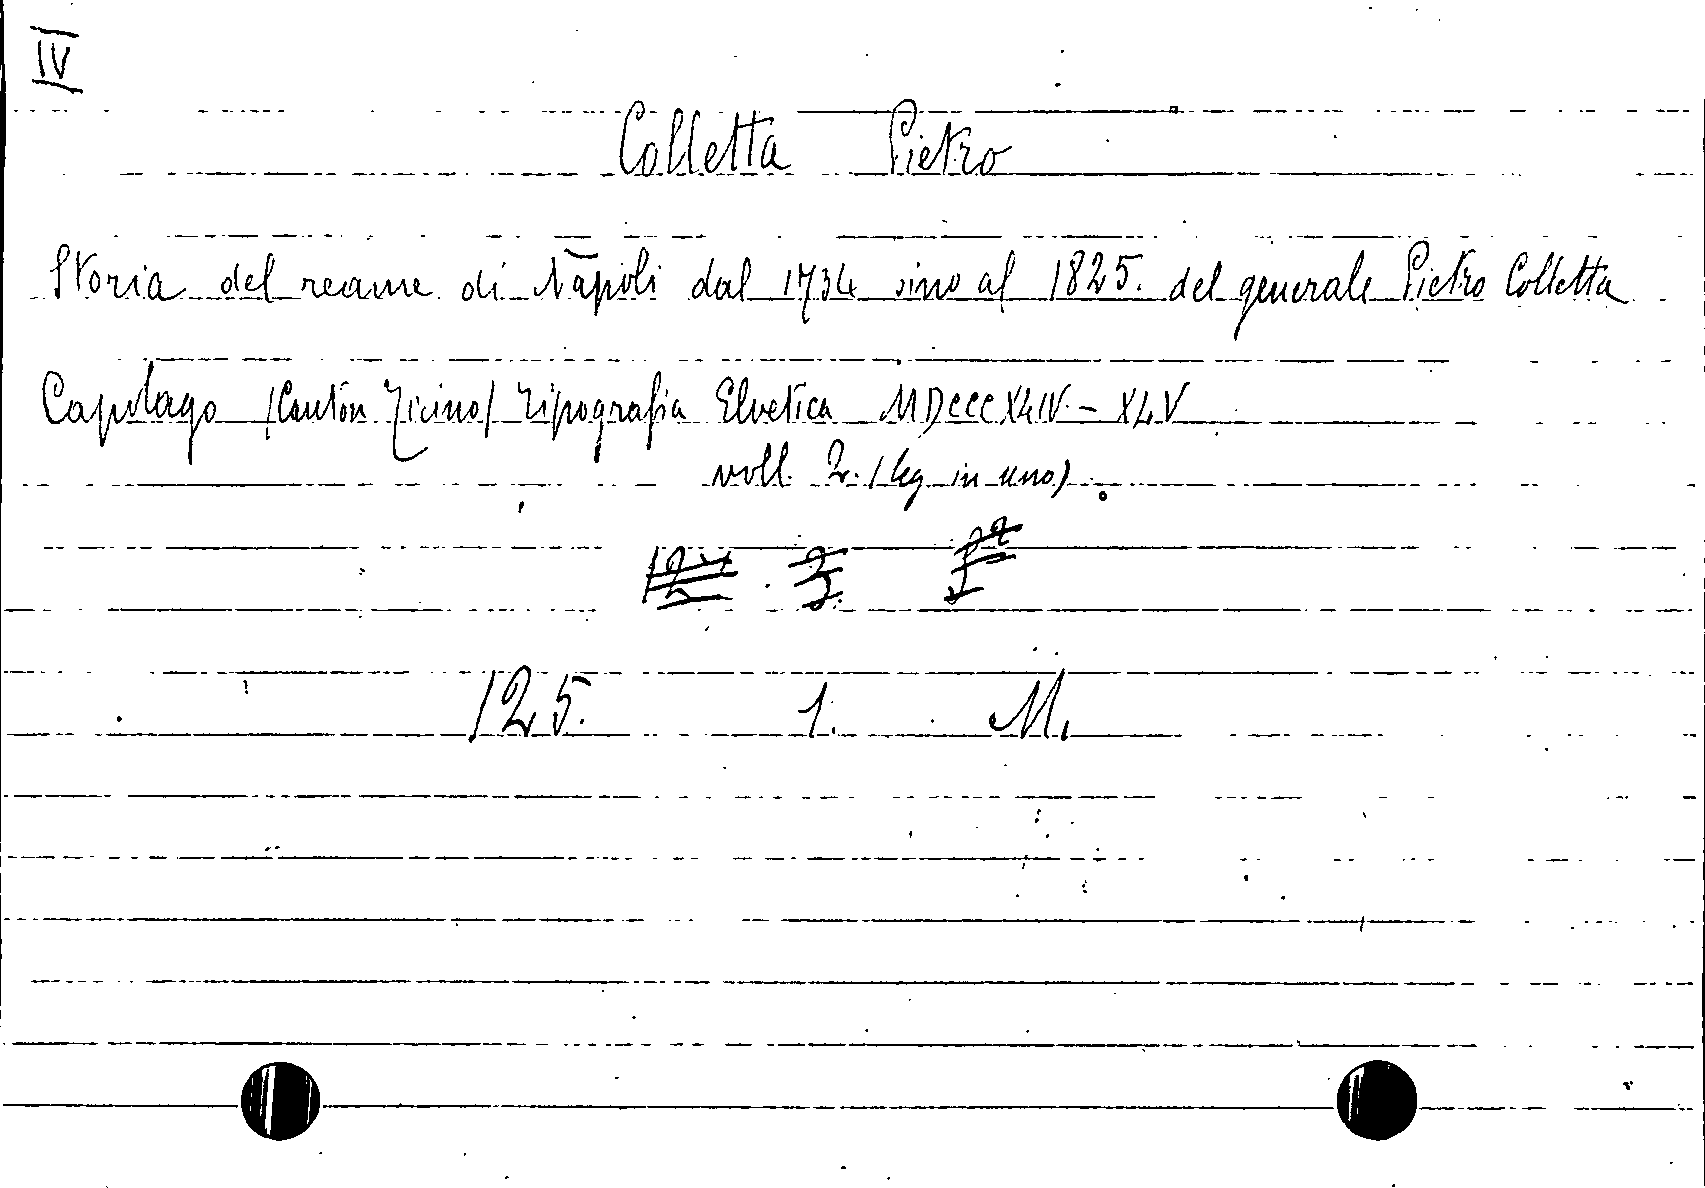 IV
Colletta Pietro
Storia del reame di Napoli dal 1734 sino al 1825. del generale Pietro Colletta
Capolago (Canton Ticino) Tipografia Elvetica MDCCCXLIV - XLV
voll. 2. (leg in uno).
125. 1. M.